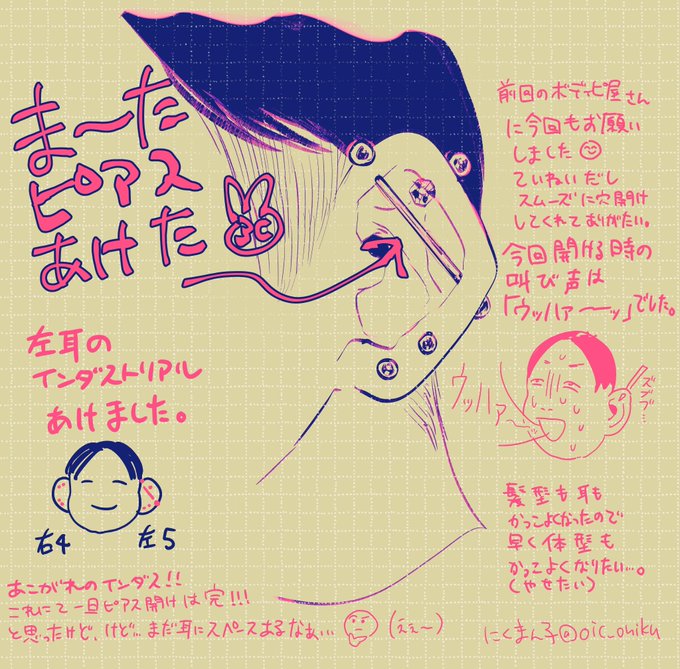 ま〜た
ピアス
あけた
前回のボディピ屋さん
に今回もお願い
しました
ていねいだし
スムーズに穴開け
してくれてありがたい。
今回開ける時の
叫び声は
「ウッハァ〜ッ」でした。
左耳の
インダストリアル
あけました。
右4
左5
ウッハァ〜ッ
ズブブ…
髪型も耳も
かっこよくなったので
早く体型も
かっこよくなりたい…。
(やせたい)
あこがれのインダス!!
これにて一旦ピアス開けは完!!!
と思ったけど、けど…まだ耳にスペースあるなぁ…
(ええ〜)
にくまん子@oic_oniku